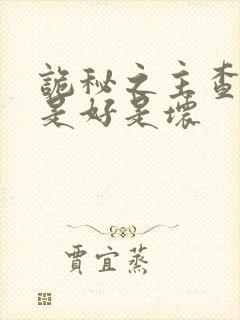 詭秘之主查
是好是壞
賈宜蒸